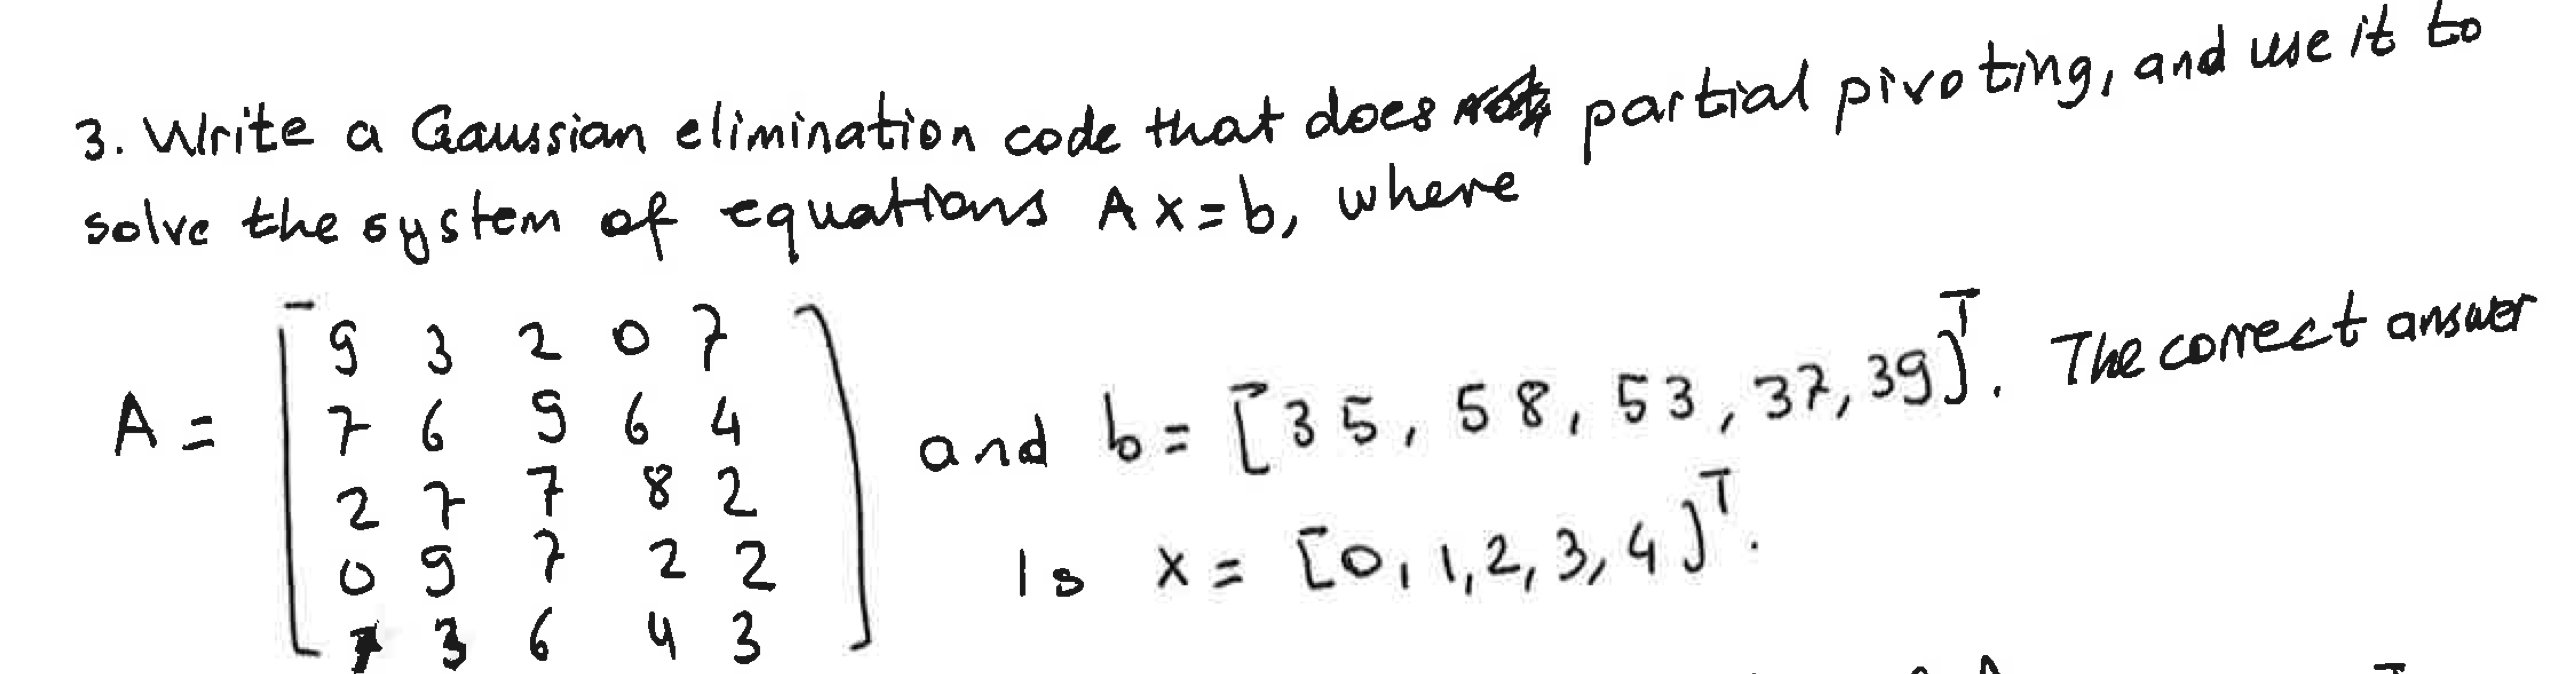 3. Write a Gaussian elimination code that does partial pivoting, and use it to
solve the system of equations Ax=b, where
A = [ 9 3 2 0 7
7 6 9 6 4
2 7 7 8 2
0 9 7 2 2
7 3 6 4 3 ]
and b = [35, 58, 53, 37, 39]ᵀ. The correct answer
Is x = [0, 1, 2, 3, 4]ᵀ.